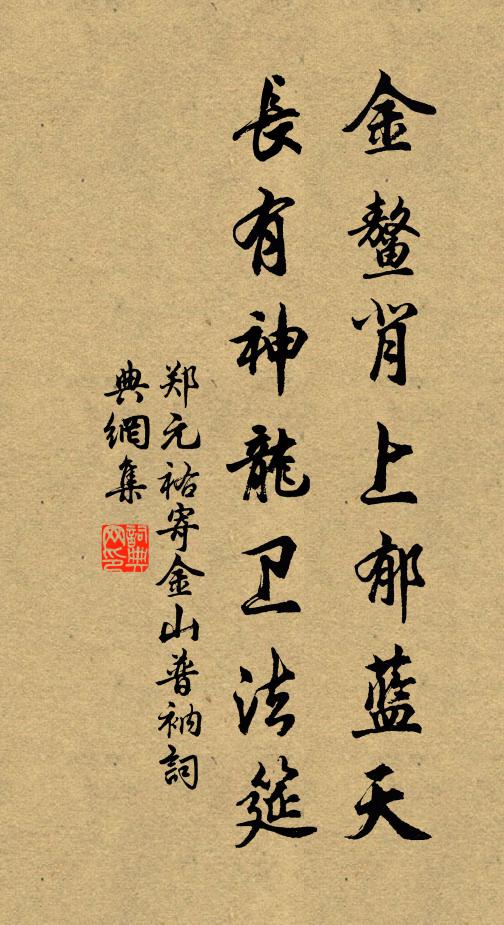 金鳌背上郁藍天
長有神龍卫法筵
郑元祐寄金山普衲詞
典網集
詞典网印